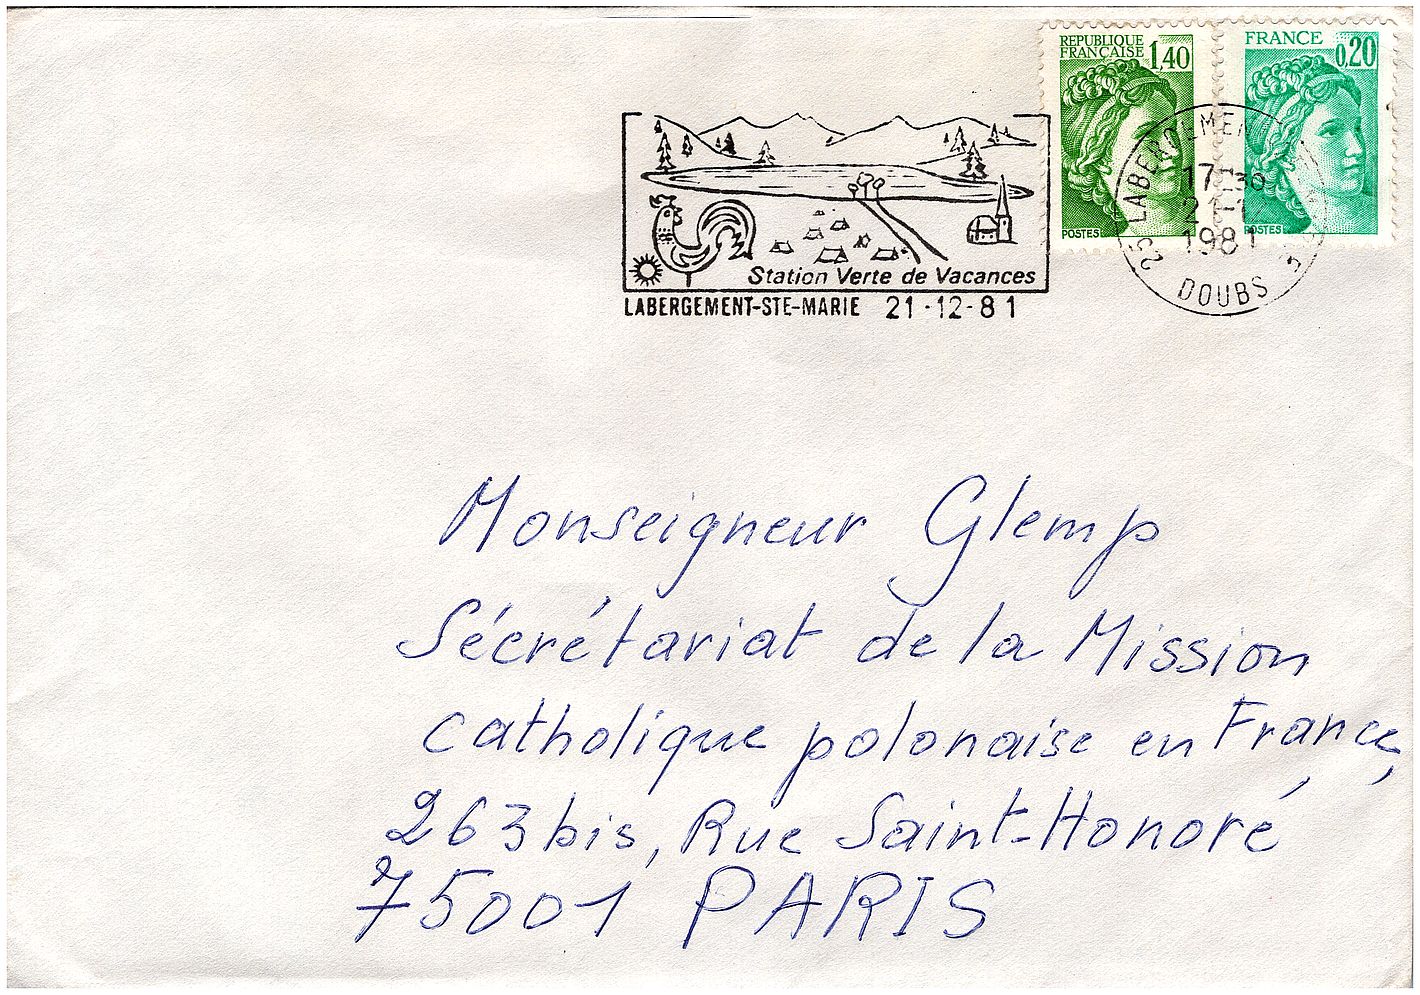 REPUBLIQUE
FRANÇAISE 1,40
POSTES
FRANCE
0,20
POSTES
Station Verte de Vacances
LABERGEMENT-STE-MARIE 21-12-81
25 LABERGEMEN
17-30
21-12
1981
DOUBS
Monseigneur Glemp
Sécrétariat de la Mission
catholique polonaise en France,
263 bis, Rue Saint-Honoré
75001 PARIS